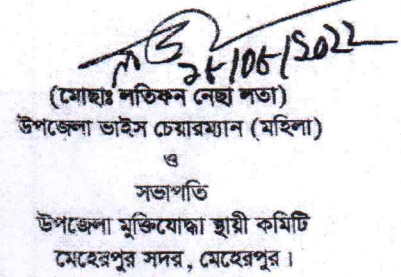 ২৫/০৫/২০২২
(মোছাঃ লতিফন নেছা লতা)
উপজেলা ভাইস চেয়ারম্যান (মহিলা)
ও
সভাপতি
উপজেলা মুক্তিযোদ্ধা স্থায়ী কমিটি
মেহেরপুর সদর, মেহেরপুর।